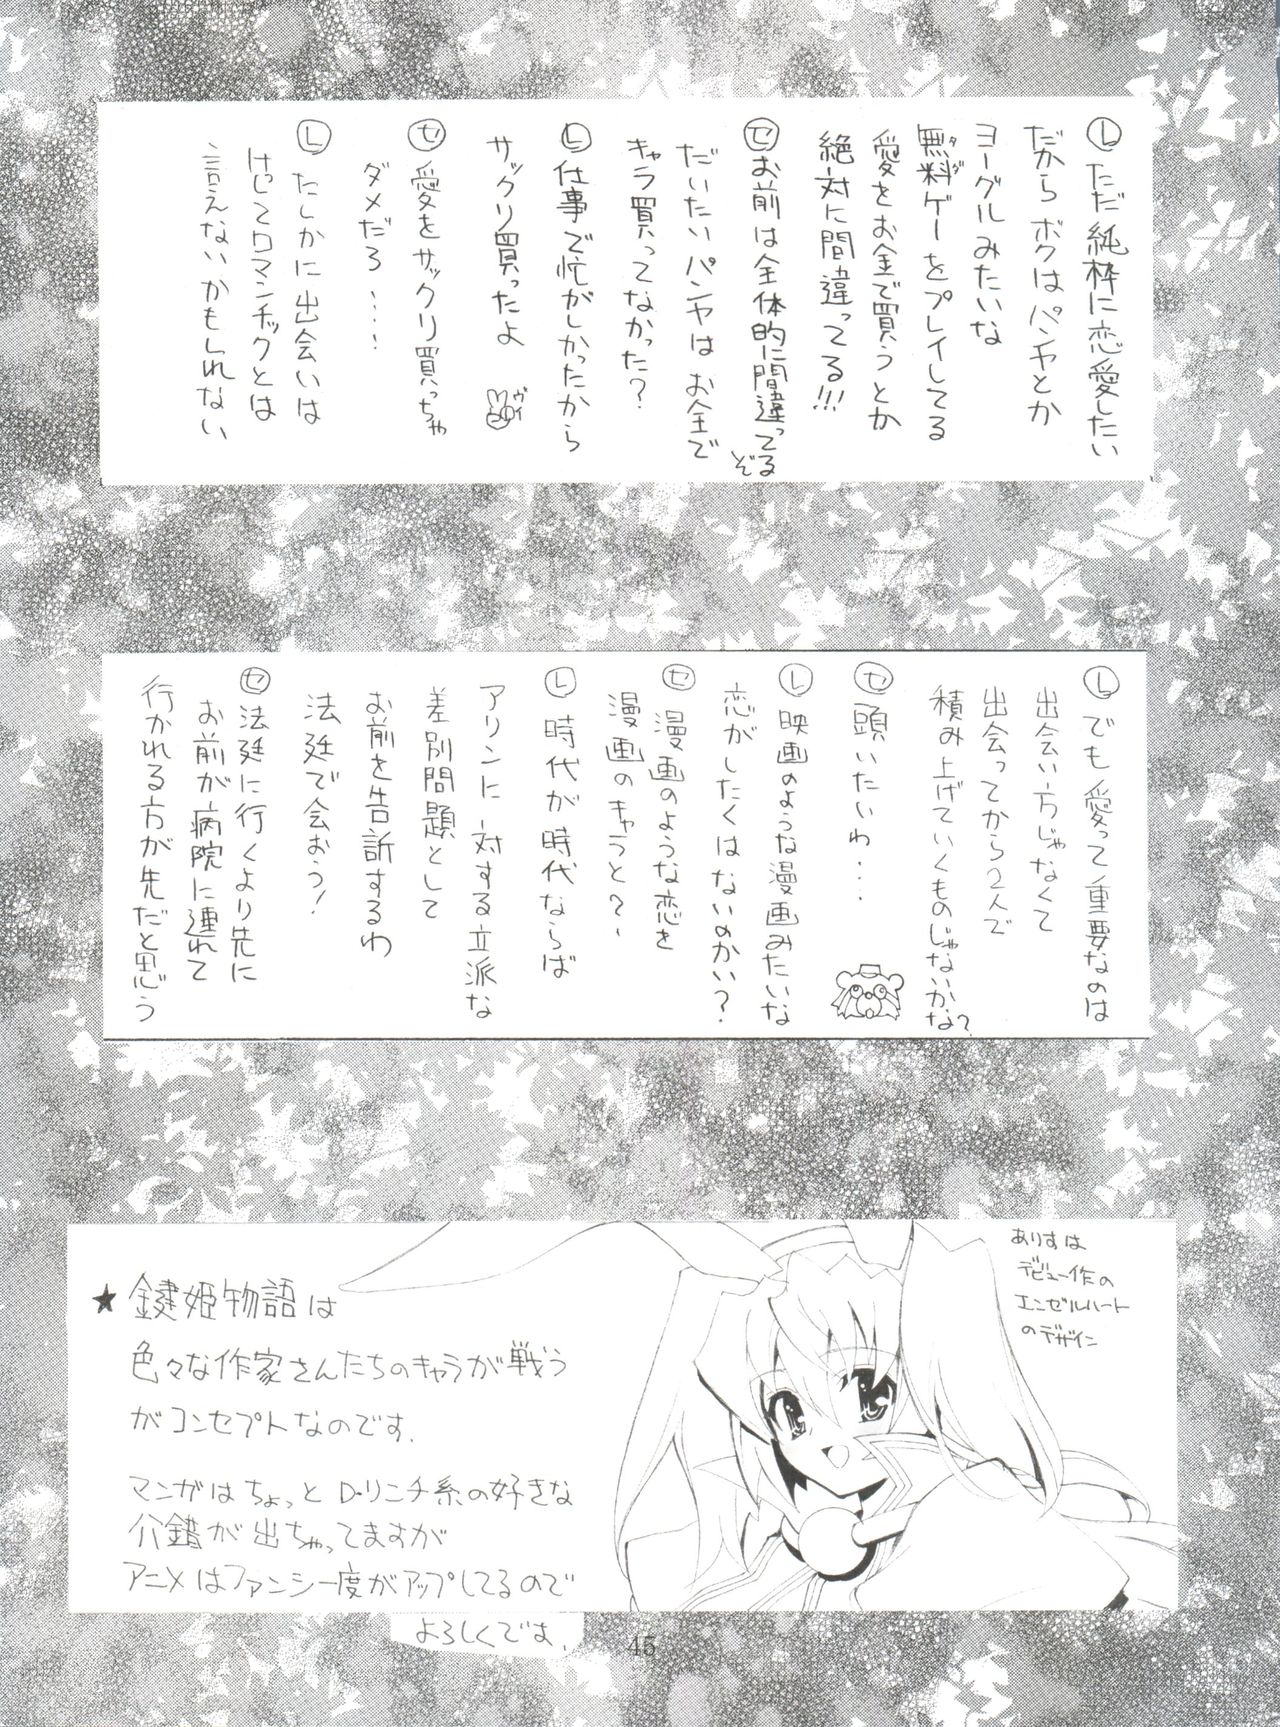 Ⓛただ純粋に恋愛したい
だからボクはパンヤとか
ヨーグルみたいな
無料ゲーをプレイしてる
タダ
愛をお金で買うとか
絶対に間違ってる!!!
㋝お前は全体的に間違ってるぞ
だいたいパンヤはお金で
キャラ買ってなかった?
Ⓛ仕事で忙がしかったから
サックリ買ったよ
ヴイ
㋝愛をサックリ買っちゃ
ダメだろ・・・・
Ⓛたしかに出会いは
けしてロマンチックとは
言えないかもしれない
Ⓛでも愛って重要なのは
出会い方じゃなくて
出会ってから2人で
積み上げていくものじゃないかな?
㋝頭いたいわ・・・
Ⓛ映画のような漫画みたいな
恋がしたくはないのかい?
㋝漫画のような恋を
漫画のキャラと?
Ⓛ時代が時代ならば
アリンに対する立派な
差別問題として
お前を告訴するわ
法廷で会おう!
㋝法廷に行くより先に
お前が病院に連れて
行かれる方が先だと思う
ありすは
デビュー作の
エンゼルハート
のデザイン
★鍵姫物語は
色々な作家さんたちのキャラが戦う
がコンセプトなのです.
マンガはちょっとD・リンチ系の好きな
介錯が出ちゃってますが
アニメはファンシー度がアップしてるので
よろしくです.
45